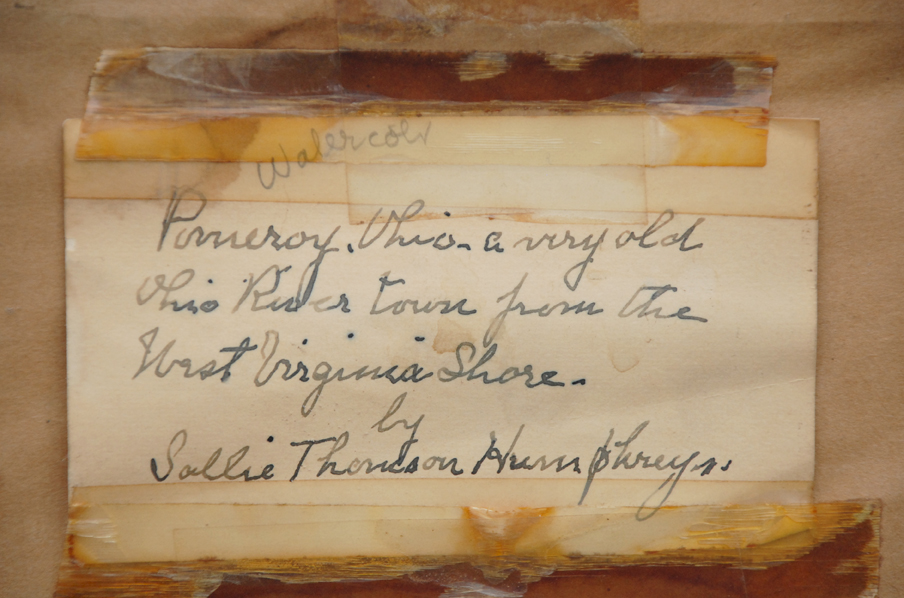 Watercolor
Pomeroy, Ohio - a very old
Ohio River town from the
West Virginia Shore.
by
Sallie Thomson Humphreys.